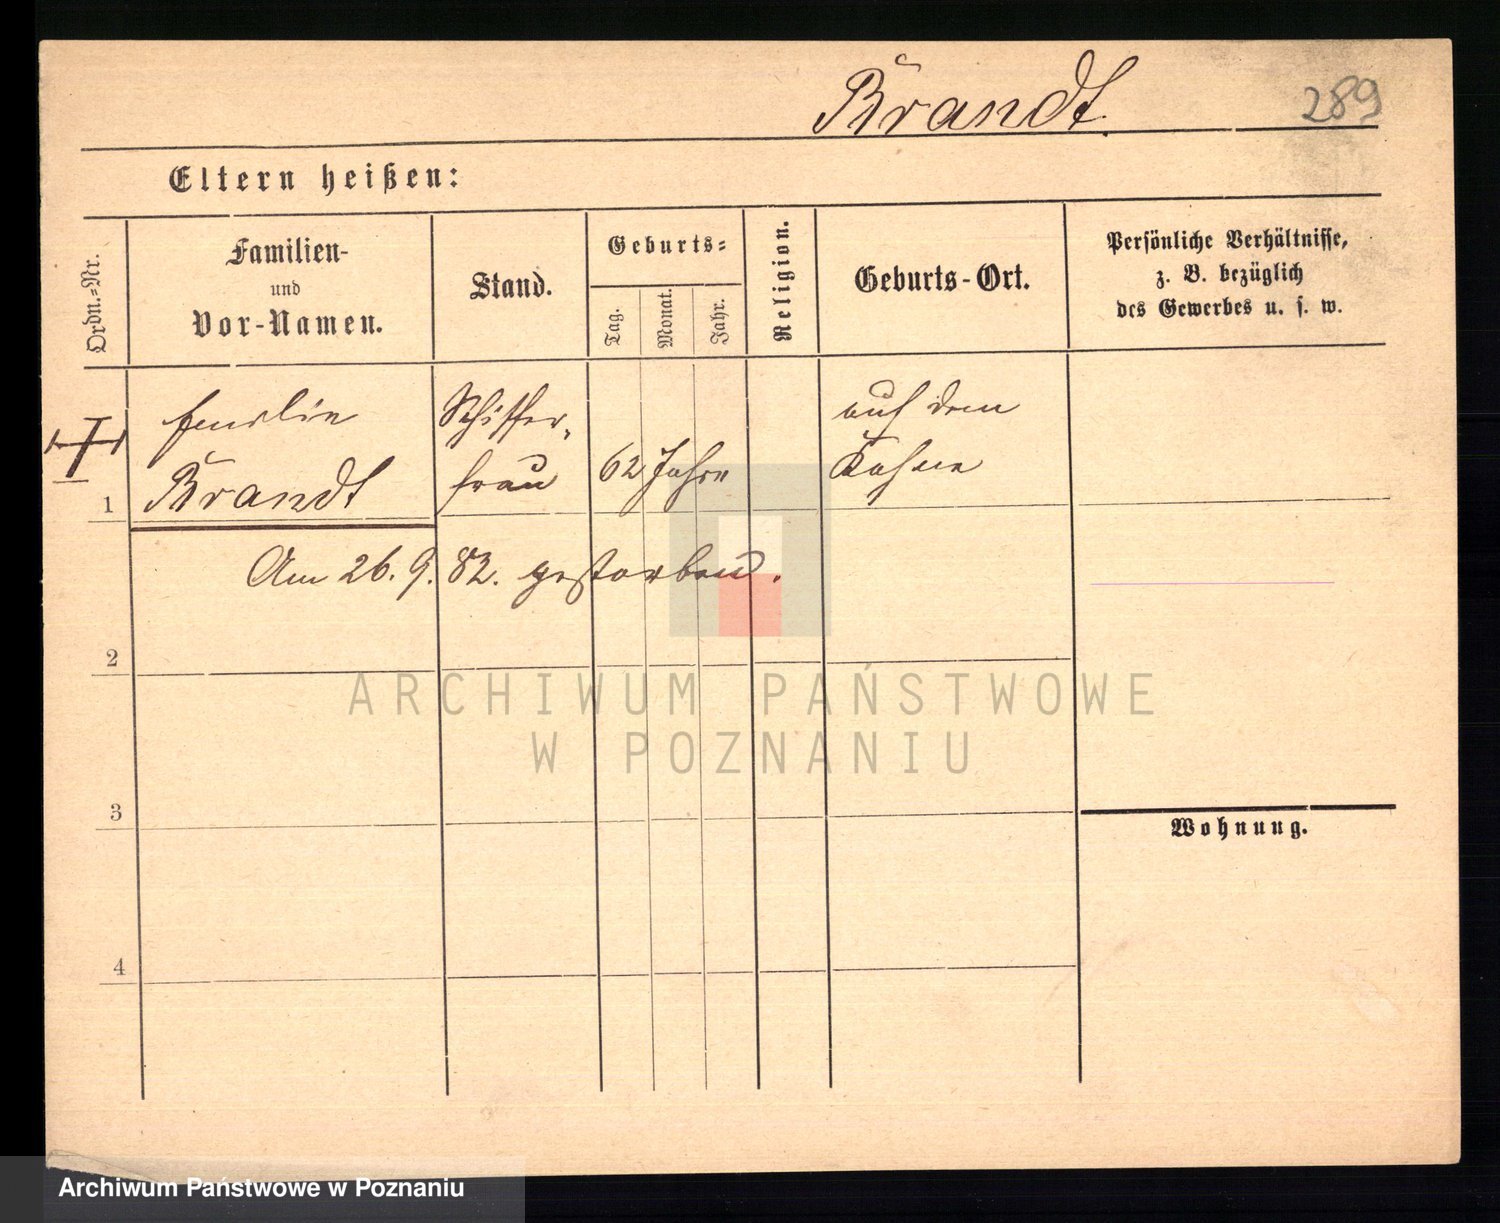 Brandt.
289
Eltern heißen:
Ordn.-Nr.
Familien-
und
Vor-Namen.
Stand.
Geburts-
Tag.
Monat.
Jahr.
Religion.
Geburts-Ort.
Persönliche Verhältnisse,
z. B. bezüglich
des Gewerbes u. s. w.
1
Brandt
Schiffer-
frau
62 Jahre
auf dem
Kahne
Am 26. 9. 82. gestorben.
2
3
4
Wohnung.
ARCHIWUM PAŃSTWOWE
W POZNANIU
Archiwum Państwowe w Poznaniu